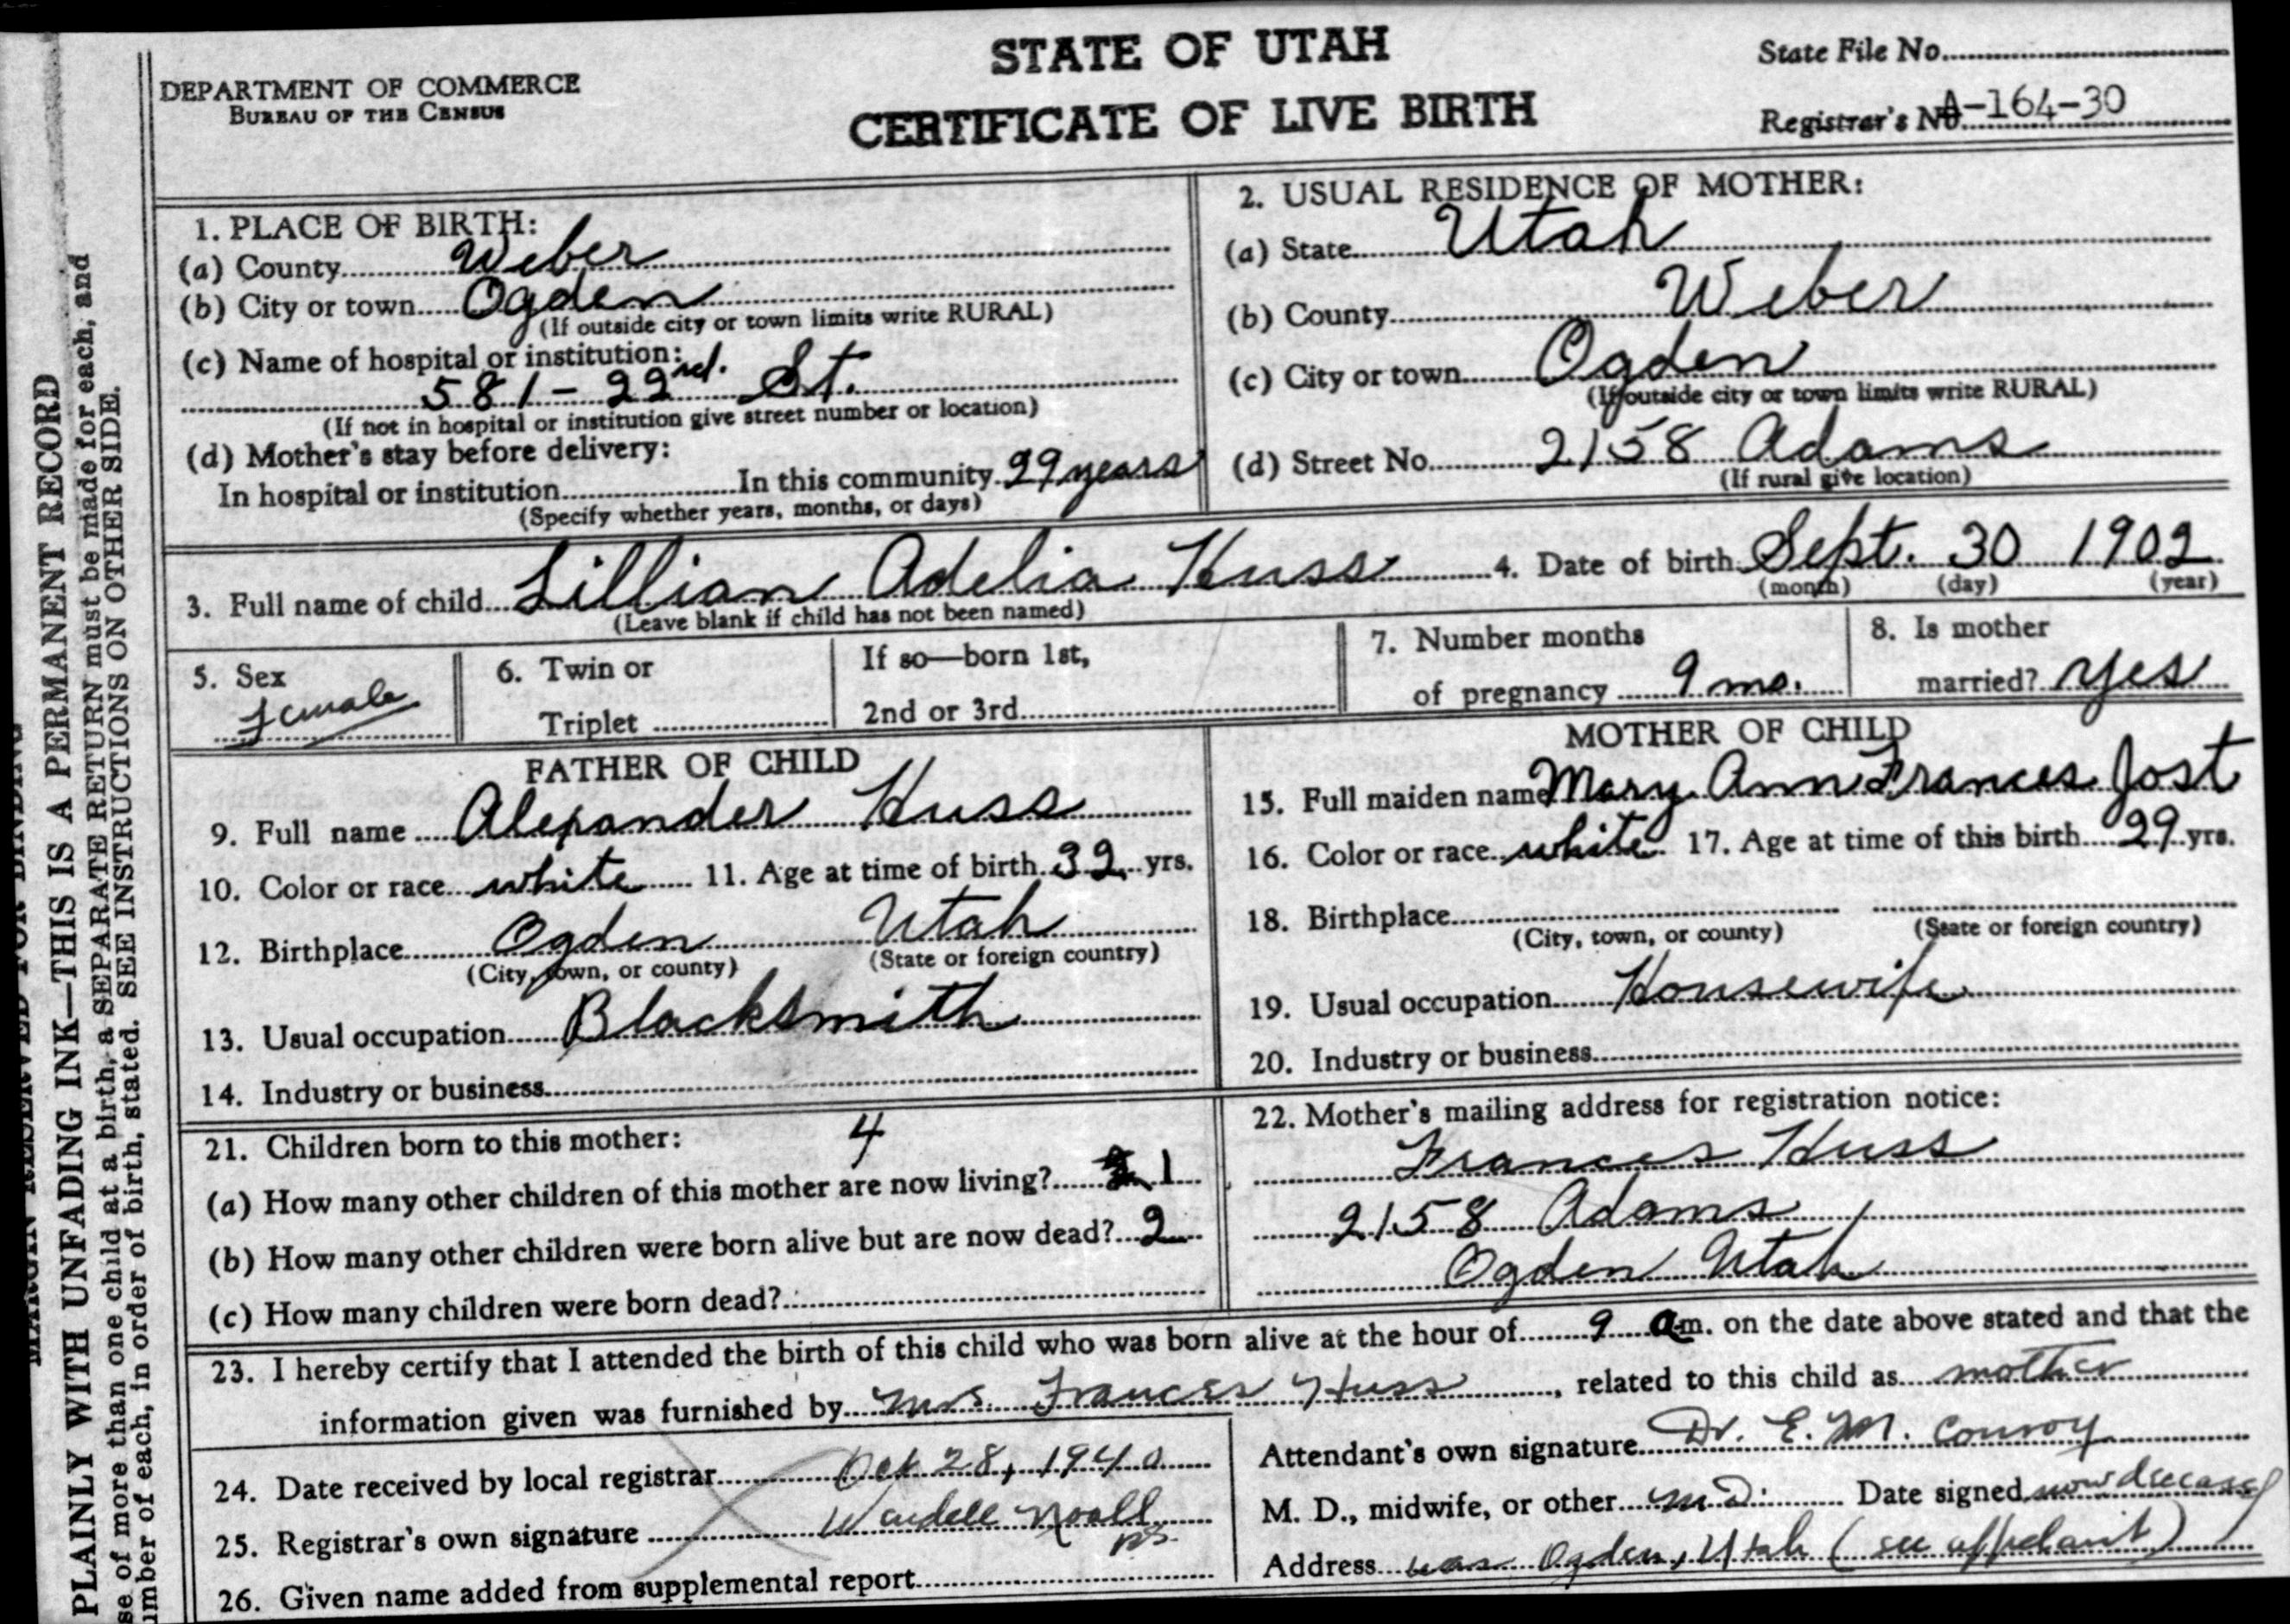 STATE OF UTAH
CERTIFICATE OF LIVE BIRTH
DEPARTMENT OF COMMERCE
BUREAU OF THE CENSUS
State File No.
Registrar's No. A-164-30
1. PLACE OF BIRTH:
(a) County Weber
(b) City or town Ogden
(If outside city or town limits write RURAL)
(c) Name of hospital or institution:
581-22nd. St.
(If not in hospital or institution give street number or location)
(d) Mother's stay before delivery:
In hospital or institution In this community 29 years
(Specify whether years, months, or days)
2. USUAL RESIDENCE OF MOTHER:
(a) State Utah
(b) County Weber
(c) City or town Ogden
(If outside city or town limits write RURAL)
(d) Street No. 2158 Adams
(If rural give location)
3. Full name of child Lillian Adelia Huss 4. Date of birth Sept. 30 1902
(Leave blank if child has not been named) (month) (day) (year)
5. Sex
Female
6. Twin or
Triplet
If so—born 1st,
2nd or 3rd
7. Number months
of pregnancy 9 mo.
8. Is mother
married? Yes
FATHER OF CHILD
9. Full name Alexander Huss
10. Color or race white 11. Age at time of birth 32 yrs.
12. Birthplace Ogden Utah
(City, town, or county) (State or foreign country)
13. Usual occupation Blacksmith
14. Industry or business
MOTHER OF CHILD
15. Full maiden name Mary Ann Frances Jost
16. Color or race white 17. Age at time of this birth 29 yrs.
18. Birthplace
(City, town, or county) (State or foreign country)
19. Usual occupation Housewife
20. Industry or business
21. Children born to this mother: 4
(a) How many other children of this mother are now living? 1
(b) How many other children were born alive but are now dead? 2
(c) How many children were born dead?
22. Mother's mailing address for registration notice:
Frances Huss
2158 Adams
Ogden Utah
23. I hereby certify that I attended the birth of this child who was born alive at the hour of 9 a m. on the date above stated and that the
information given was furnished by Mrs. Frances Huss, related to this child as mother
24. Date received by local registrar Oct 28, 1940
25. Registrar's own signature Wendell Noall
26. Given name added from supplemental report
Attendant's own signature Dr. E. M. Conroy
M. D., midwife, or other M.D. Date signed now deceased
Address was Ogden, Utah (see affidavit)
PLAINLY WITH UNFADING INK—THIS IS A PERMANENT RECORD
se of more than one child at a birth, a SEPARATE RETURN must be made for each, and
umber of each, in order of birth, stated. SEE INSTRUCTIONS ON OTHER SIDE.